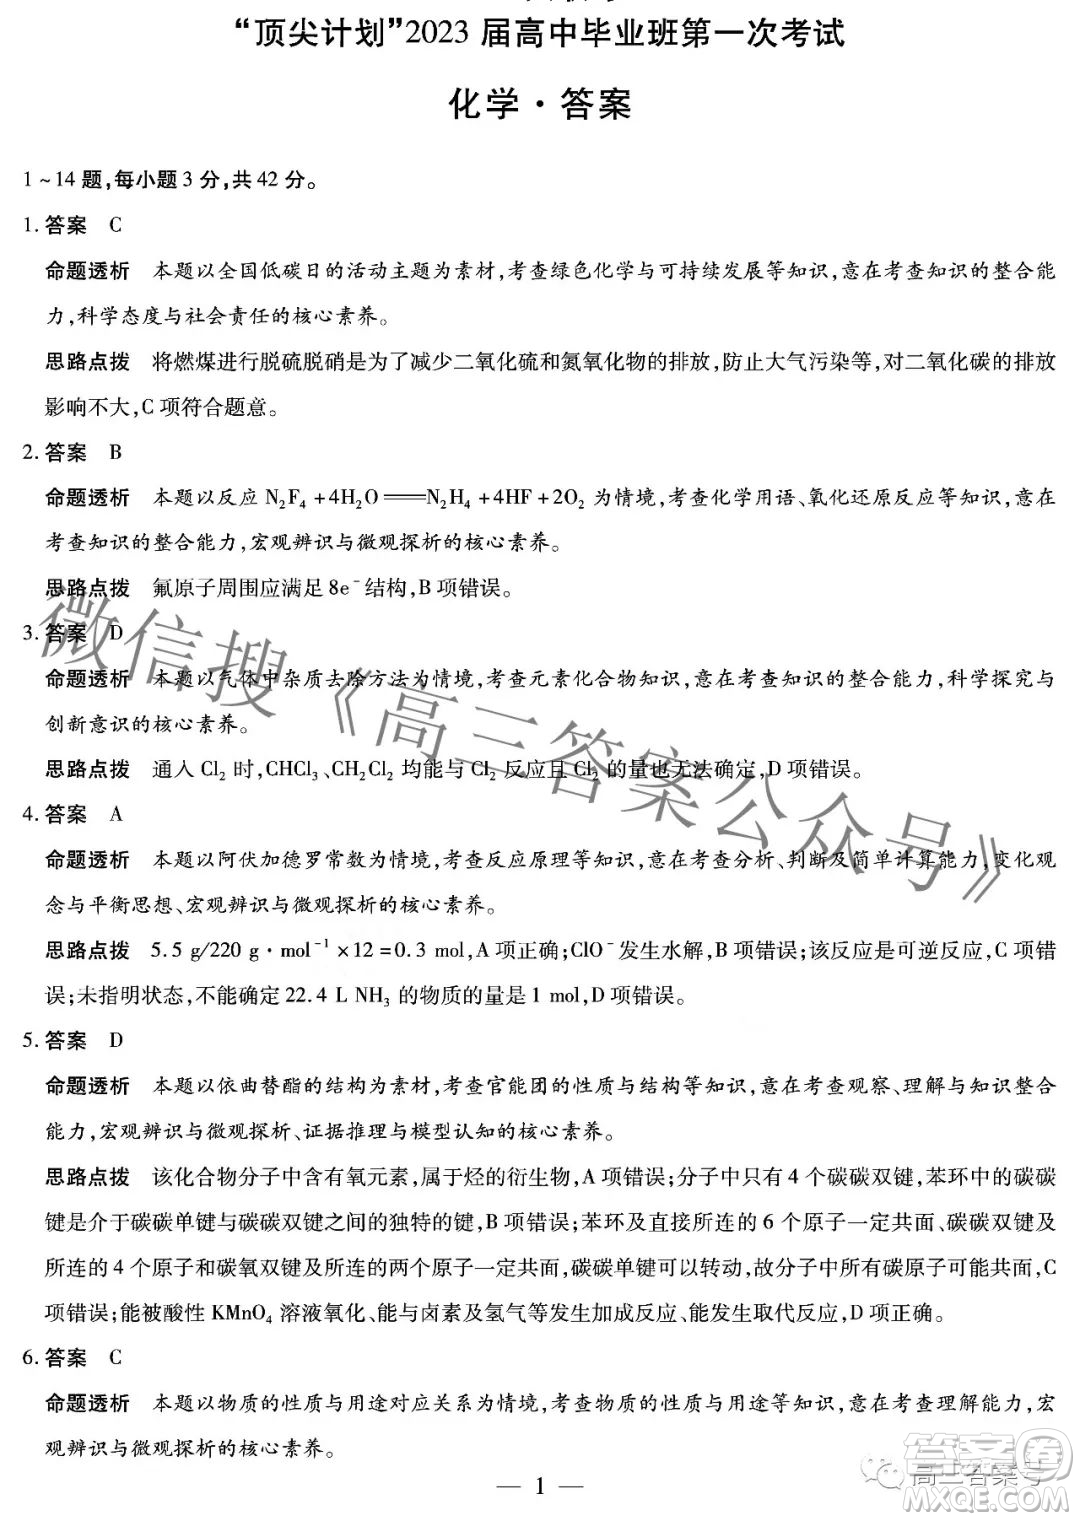 “顶尖计划”2023 届高中毕业班第一次考试
化学·答案
1~14 题,每小题 3 分,共 42 分。
1. 答案 C
命题透析 本题以全国低碳日的活动主题为素材,考查绿色化学与可持续发展等知识,意在考查知识的整合能
力,科学态度与社会责任的核心素养。
思路点拨 将燃煤进行脱硫脱硝是为了减少二氧化硫和氮氧化物的排放,防止大气污染等,对二氧化碳的排放
影响不大,C 项符合题意。
2. 答案 B
命题透析 本题以反应 N₂F₄ +4H₂O══N₂H₄ +4HF+2O₂ 为情境,考查化学用语、氧化还原反应等知识,意在
考查知识的整合能力,宏观辨识与微观探析的核心素养。
思路点拨 氟原子周围应满足 8e⁻ 结构,B 项错误。
3. 答案 D
命题透析 本题以气体中杂质去除方法为情境,考查元素化合物知识,意在考查知识的整合能力,科学探究与
创新意识的核心素养。
思路点拨 通入 Cl₂ 时,CHCl₃、CH₂Cl₂ 均能与 Cl₂ 反应且 Cl₂ 的量也无法确定,D 项错误。
4. 答案 A
命题透析 本题以阿伏加德罗常数为情境,考查反应原理等知识,意在考查分析、判断及简单计算能力,变化观
念与平衡思想、宏观辨识与微观探析的核心素养。
思路点拨 5.5 g/220 g·mol⁻¹ ×12=0.3 mol,A 项正确;ClO⁻ 发生水解,B 项错误;该反应是可逆反应,C 项错
误;未指明状态,不能确定 22.4 L NH₃ 的物质的量是 1 mol,D 项错误。
5. 答案 D
命题透析 本题以依曲替酯的结构为素材,考查官能团的性质与结构等知识,意在考查观察、理解与知识整合
能力,宏观辨识与微观探析、证据推理与模型认知的核心素养。
思路点拨 该化合物分子中含有氧元素,属于烃的衍生物,A 项错误;分子中只有 4 个碳碳双键,苯环中的碳碳
键是介于碳碳单键与碳碳双键之间的独特的键,B 项错误;苯环及直接所连的 6 个原子一定共面、碳碳双键及
所连的 4 个原子和碳氧双键及所连的两个原子一定共面,碳碳单键可以转动,故分子中所有碳原子可能共面,C
项错误;能被酸性 KMnO₄ 溶液氧化、能与卤素及氢气等发生加成反应、能发生取代反应,D 项正确。
6. 答案 C
命题透析 本题以物质的性质与用途对应关系为情境,考查物质的性质与用途等知识,意在考查理解能力,宏
观辨识与微观探析的核心素养。
— 1 —
微信搜《高三答案公众号》
高三答案号
答案圈
MXQE.COM